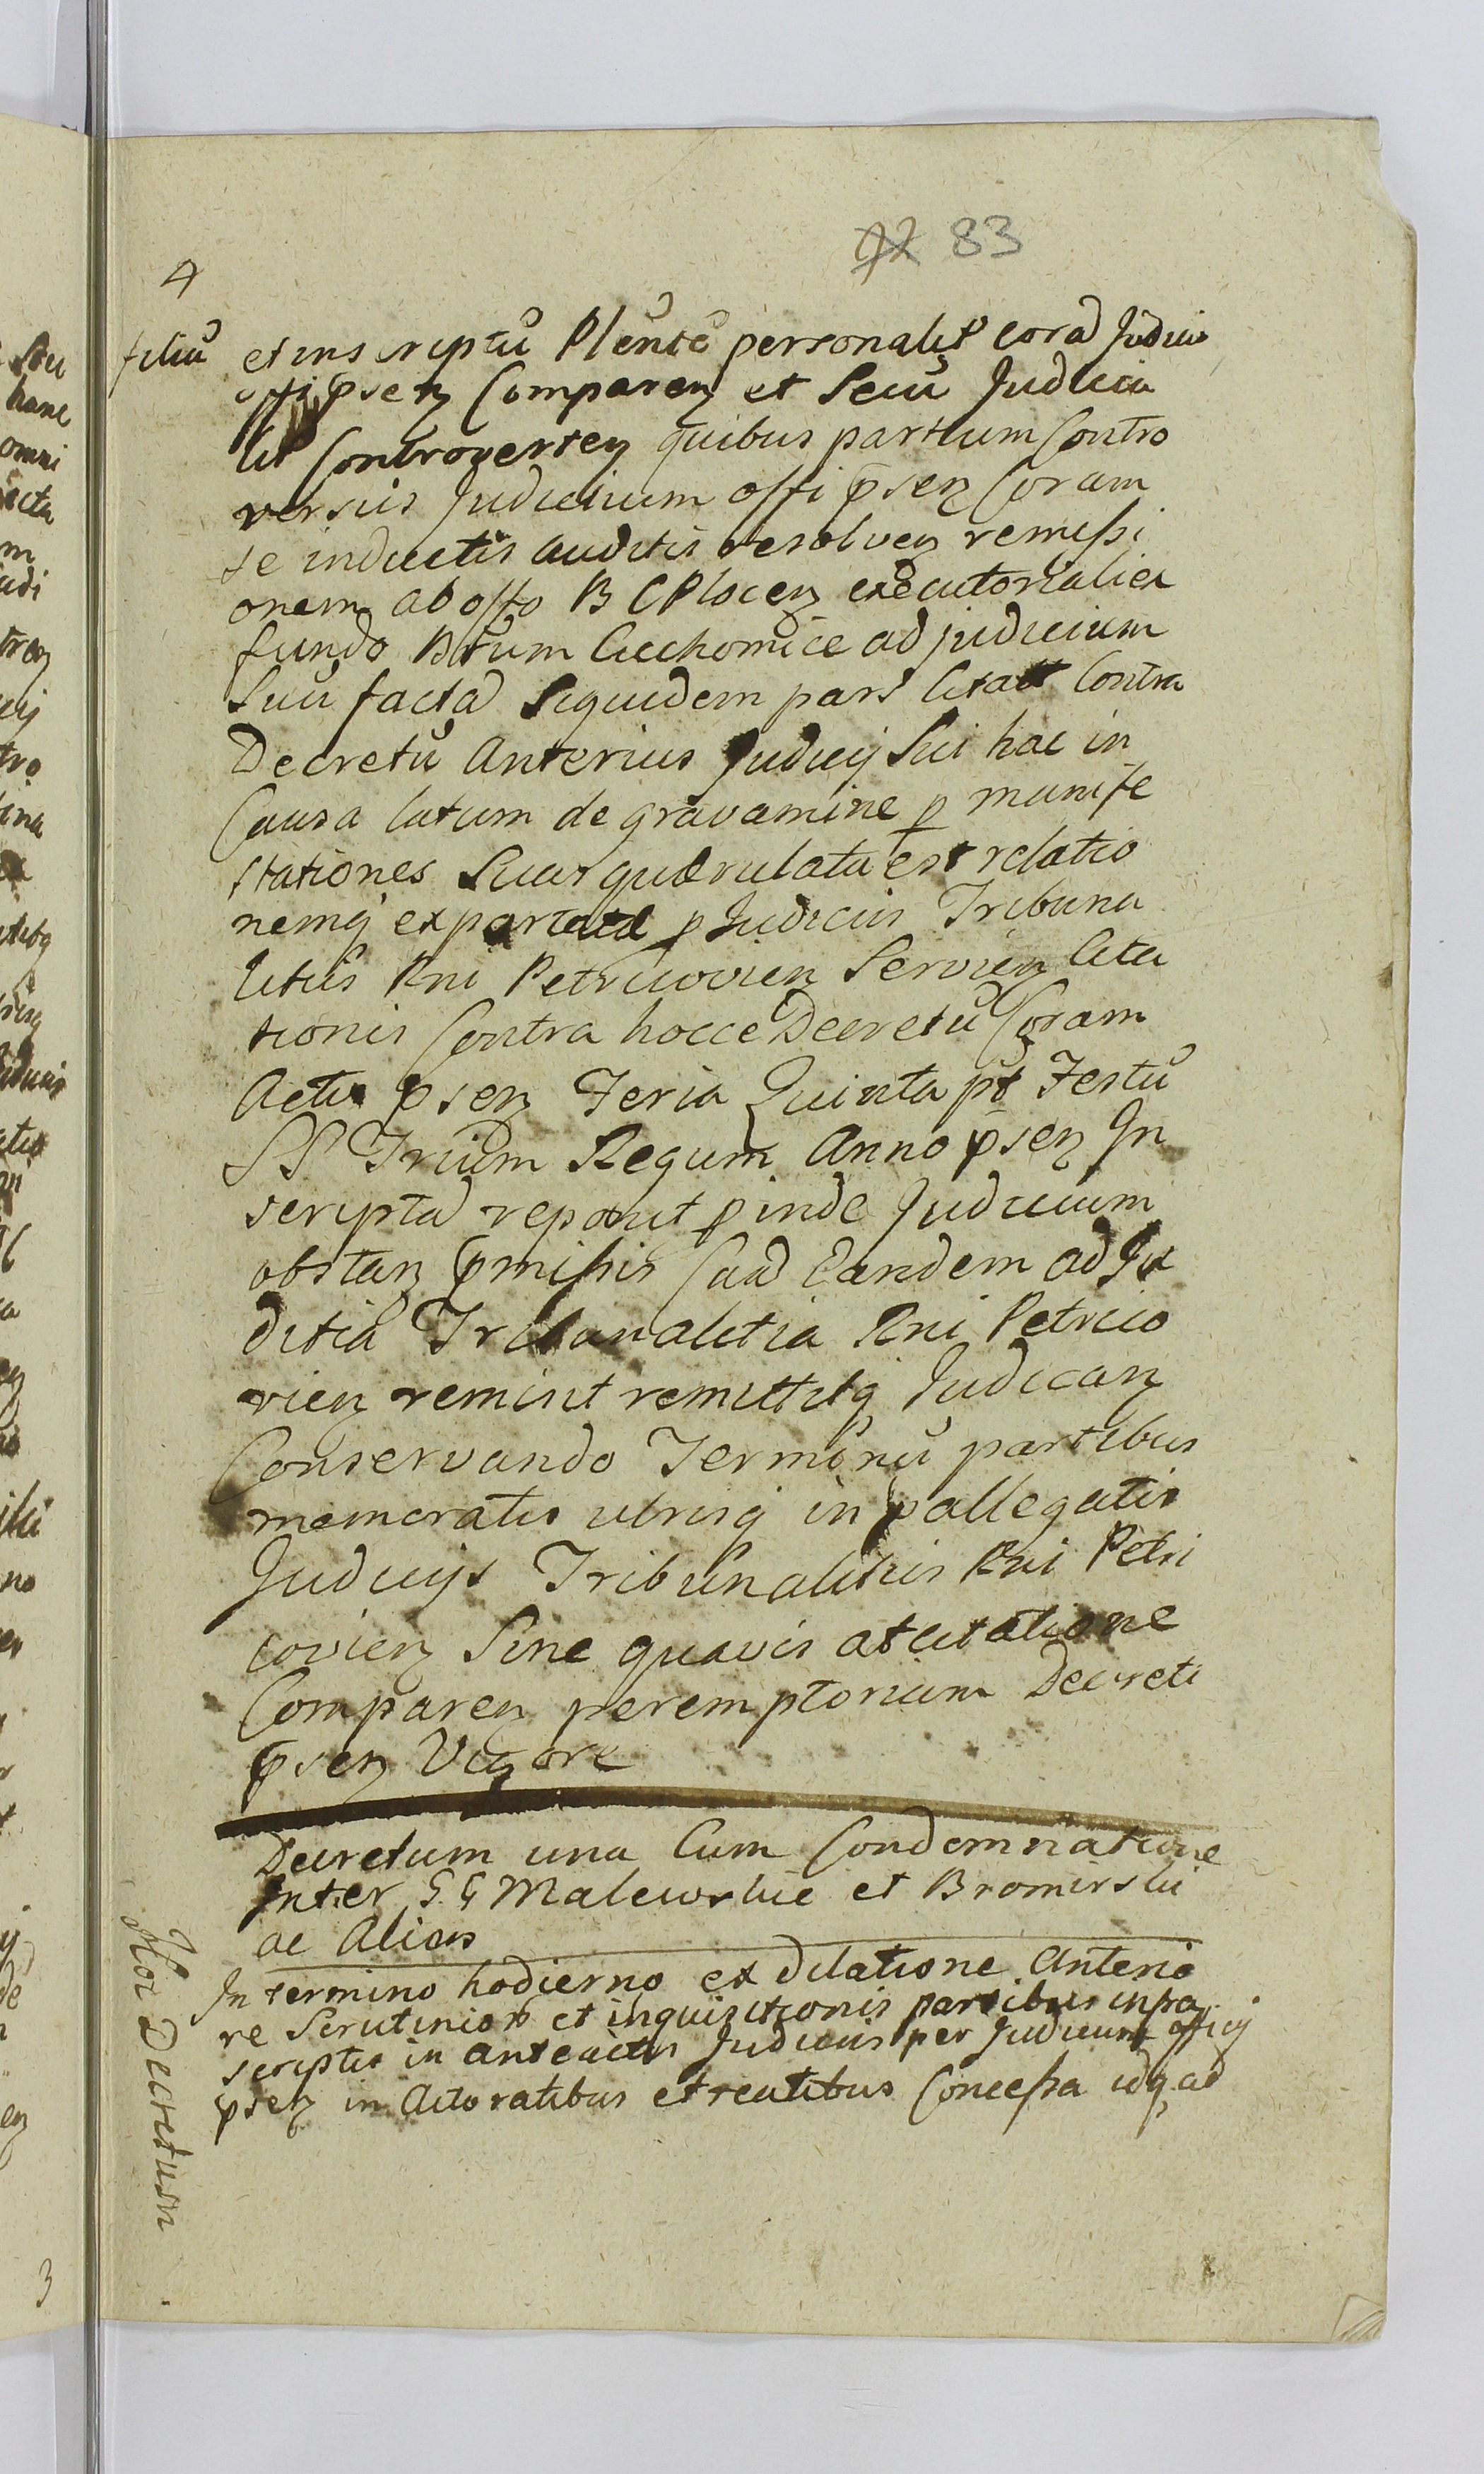 92 83
4
filiū et inscriptū Plentē personalit corā Judicio
offi psen Comparen et Secū Judicia
lit Controverten quibus partium Contro
versiis Judicium offi psen Coram
se inductis auditis resolven remissi
onem ab offo B C Plocen executorialiex
fundo Btum Cuchomice ad judicium
Suū factā Siquidem pars Citatt Contra
Decretū Anterius Judicij Sui hac in
Causa latum de gravamine p manife
stationes Suas quærulata est relatio
nemq ex p Judiciis Tribuna
litiis Rni Petricovien Servien Cita
tionis Contra hocce Decretū Coram
Actis psen Feria Quinta pt Festū
SS Trium Regum Anno psen In
scriptā reponit pinde Judicium
obstan pmissis Cau Eandem ad Ju
ditia Tribunalitia Rni Petrico
vien remisit remittitq Judican
Conservando Terminū partibus
memoratis utrisq in pallegatis
Judicijs Tribunalitiis Rni Petri
covien Sine quavis atcitatione
Comparen peremptorium Decreti
psen Vigore
Decretum una Cum Condemnatione
Inter G G Malewskie et Bromirski
ac Alios
In termino hodierno ex dilatione Anterio
re Scrutinior et inquisitionis partibus infra
scriptis in anteactis Judiciis per Judicium officij
psen in Actoratibus et reatibus Concessa idq ad
Hor Decretum